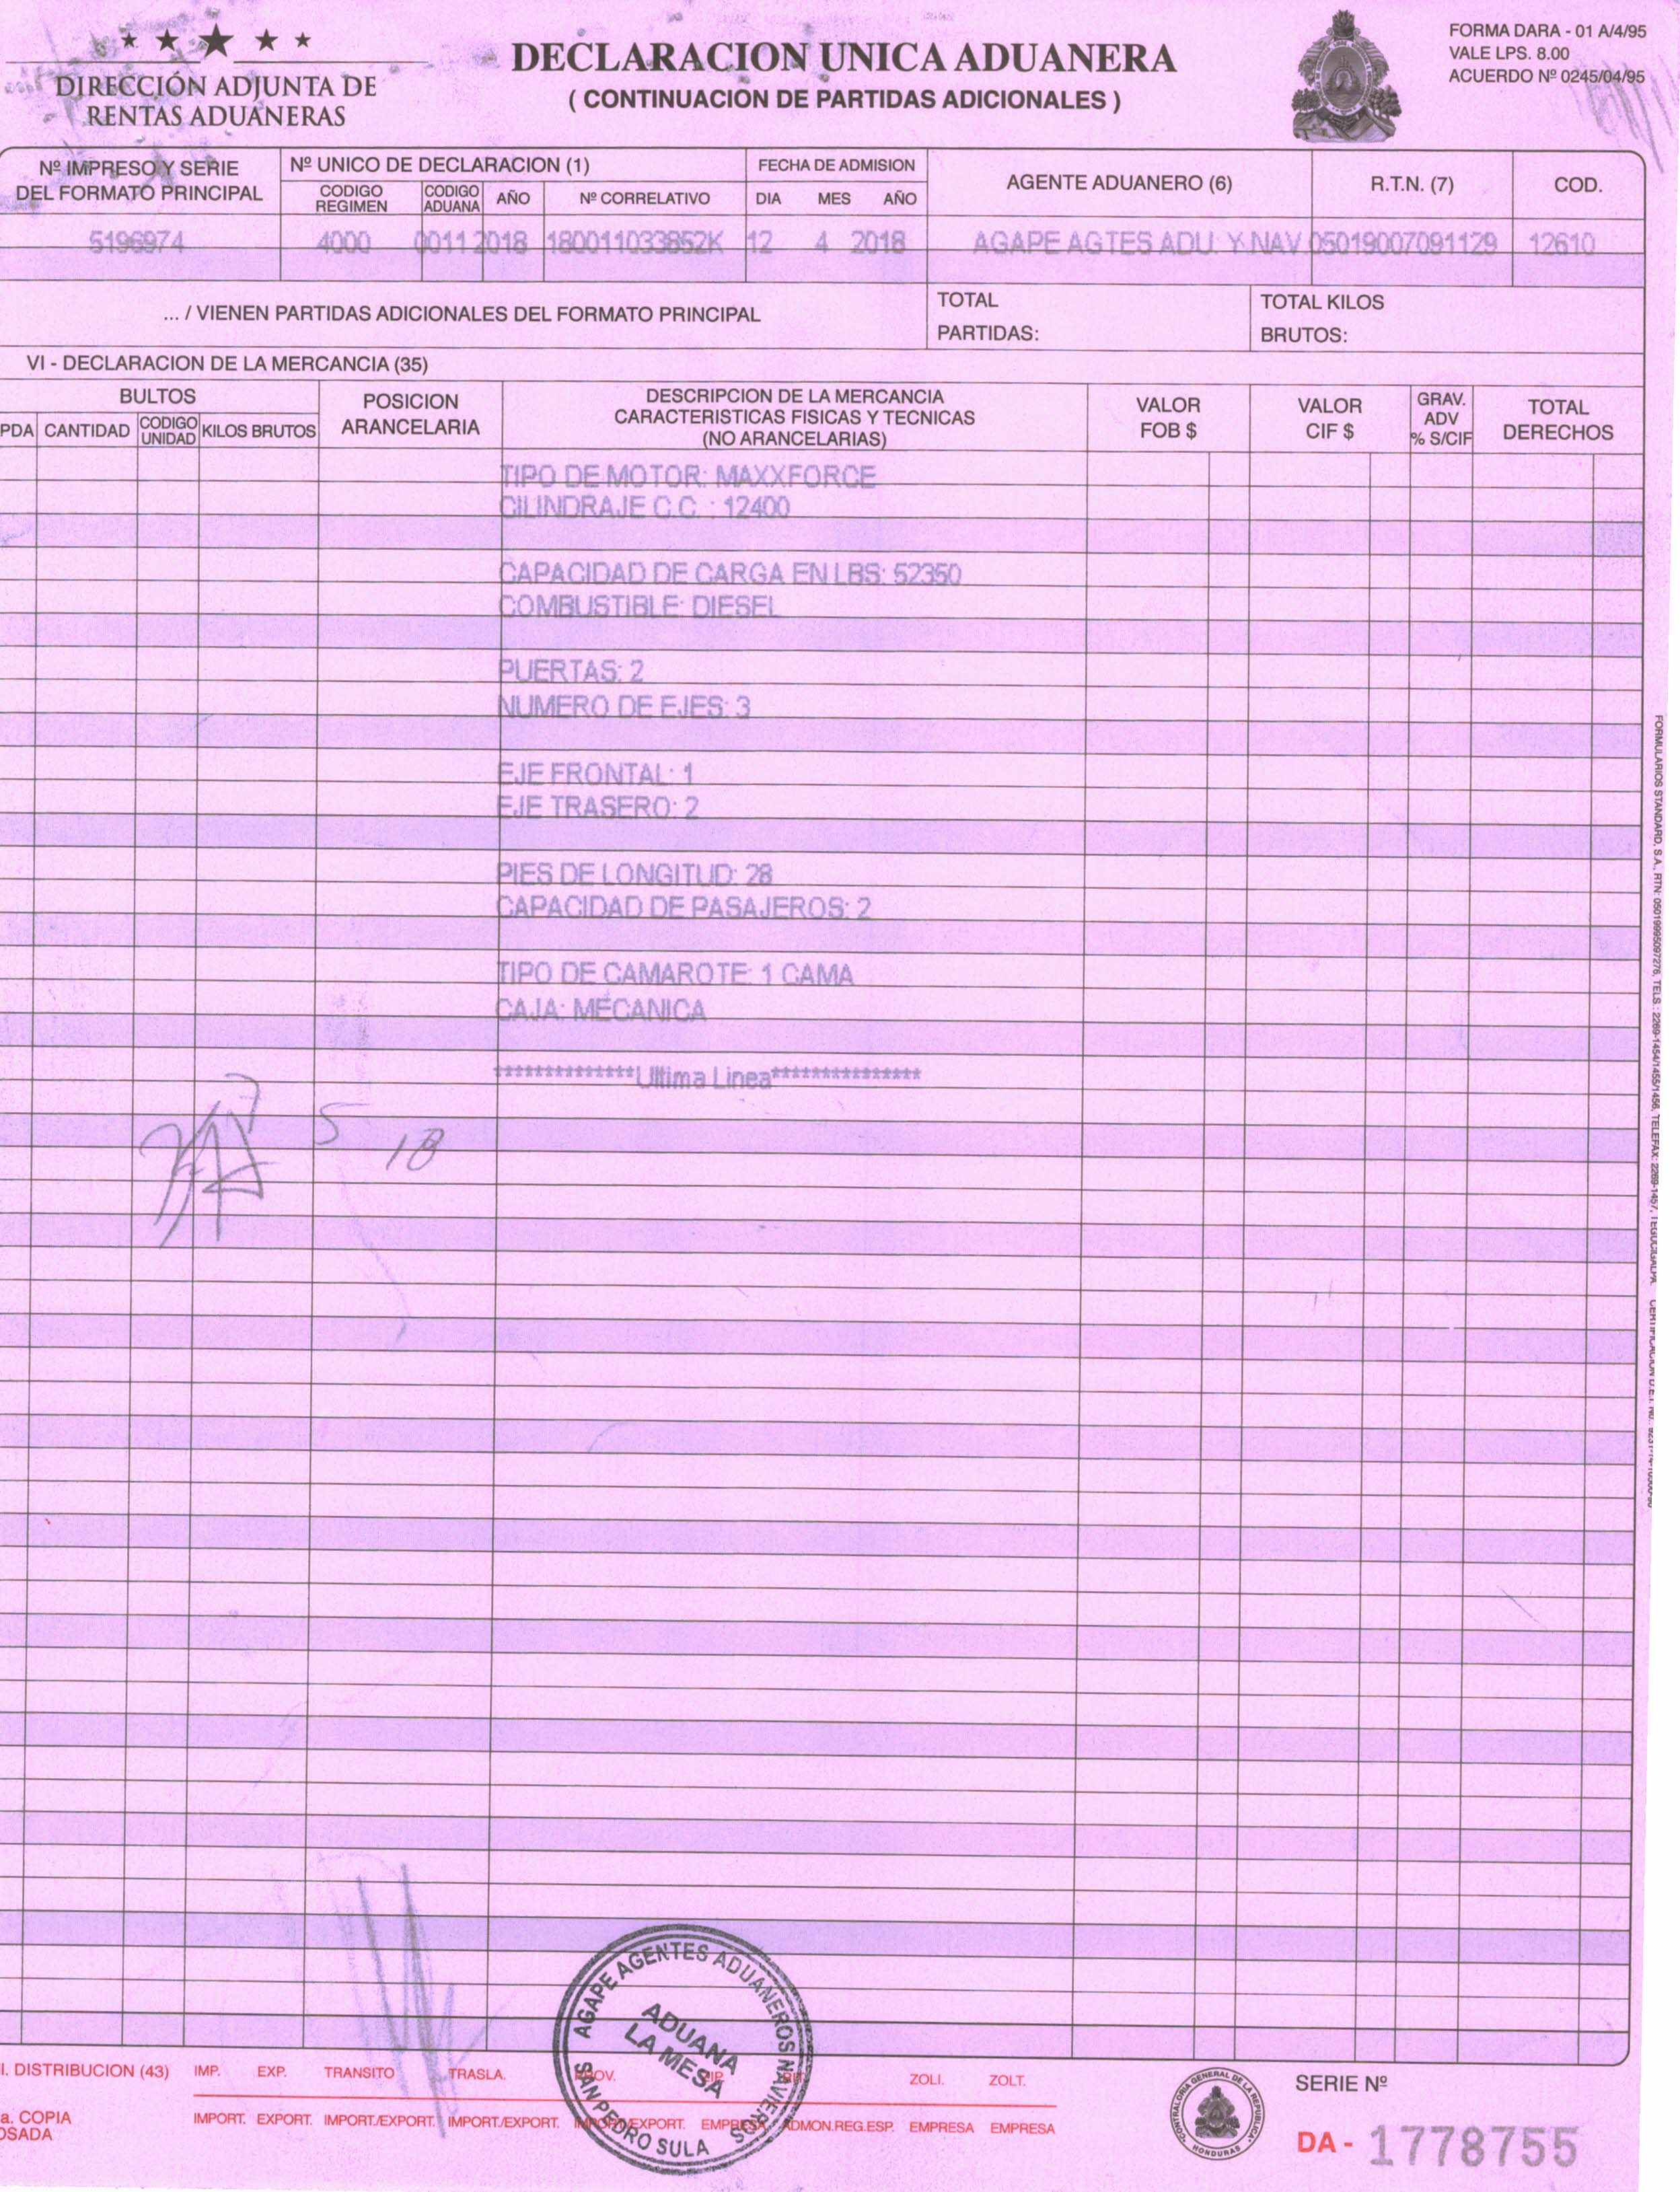 DIRECCIÓN ADJUNTA DE
RENTAS ADUANERAS
DECLARACION UNICA ADUANERA
( CONTINUACION DE PARTIDAS ADICIONALES )
FORMA DARA - 01 A/4/95
VALE LPS. 8.00
ACUERDO Nº 0245/04/95
Nº IMPRESO Y SERIE
DEL FORMATO PRINCIPAL
Nº UNICO DE DECLARACION (1)
CODIGO REGIMEN
CODIGO ADUANA
AÑO
Nº CORRELATIVO
FECHA DE ADMISION
DIA MES AÑO
AGENTE ADUANERO (6)
R.T.N. (7)
COD.
5196974 4000 0011 2018 180011033852K 12 4 2018 AGAPE AGTES ADU. Y NAV. 05019007091129 12610
... / VIENEN PARTIDAS ADICIONALES DEL FORMATO PRINCIPAL
TOTAL
PARTIDAS:
TOTAL KILOS
BRUTOS:
VI - DECLARACION DE LA MERCANCIA (35)
BULTOS
PDA CANTIDAD CODIGO UNIDAD KILOS BRUTOS
POSICION
ARANCELARIA
DESCRIPCION DE LA MERCANCIA
CARACTERISTICAS FISICAS Y TECNICAS
(NO ARANCELARIAS)
VALOR
FOB $
VALOR
CIF $
GRAV.
ADV
% S/CIF
TOTAL
DERECHOS
TIPO DE MOTOR: MAXXFORCE
CILINDRAJE C.C. : 12400
CAPACIDAD DE CARGA EN LBS: 52350
COMBUSTIBLE: DIESEL
PUERTAS: 2
NUMERO DE EJES: 3
EJE FRONTAL: 1
EJE TRASERO: 2
PIES DE LONGITUD: 28
CAPACIDAD DE PASAJEROS: 2
TIPO DE CAMAROTE: 1 CAMA
CAJA: MECANICA
**************Ultima Linea***************
5 18
FORMULARIOS STANDARD, S.A., RTN: 05019995097276, TELS.: 2269-1454/1455/1456, TELEFAX: 2269-1457, TEGUCIGALPA.
AGAPE AGENTES ADUANEROS NAVIEROS
ADUANA
LA MESA
SAN PEDRO SULA
I. DISTRIBUCION (43) IMP. EXP. TRANSITO TRASLA. ZOLI. ZOLT.
a. COPIA
OSADA
IMPORT. EXPORT. IMPORT./EXPORT. IMPORT./EXPORT. IMPORT/EXPORT. EMPRESA ADMON.REG.ESP. EMPRESA EMPRESA
CONTRALORIA GENERAL DE LA REPUBLICA
HONDURAS
SERIE Nº
DA - 1778755